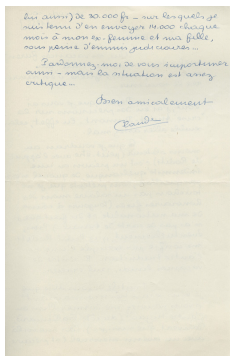 lui aussi) de 30.000 frs - sur lesquels je
suis tenu d'en envoyer 14.000 chaque
mois à mon ex-femme et ma fille,
sous peine d'ennuis judiciaires...
Pardonnez-moi de vous importuner
ainsi - mais la situation est assez
critique...
Bien amicalement
Claude